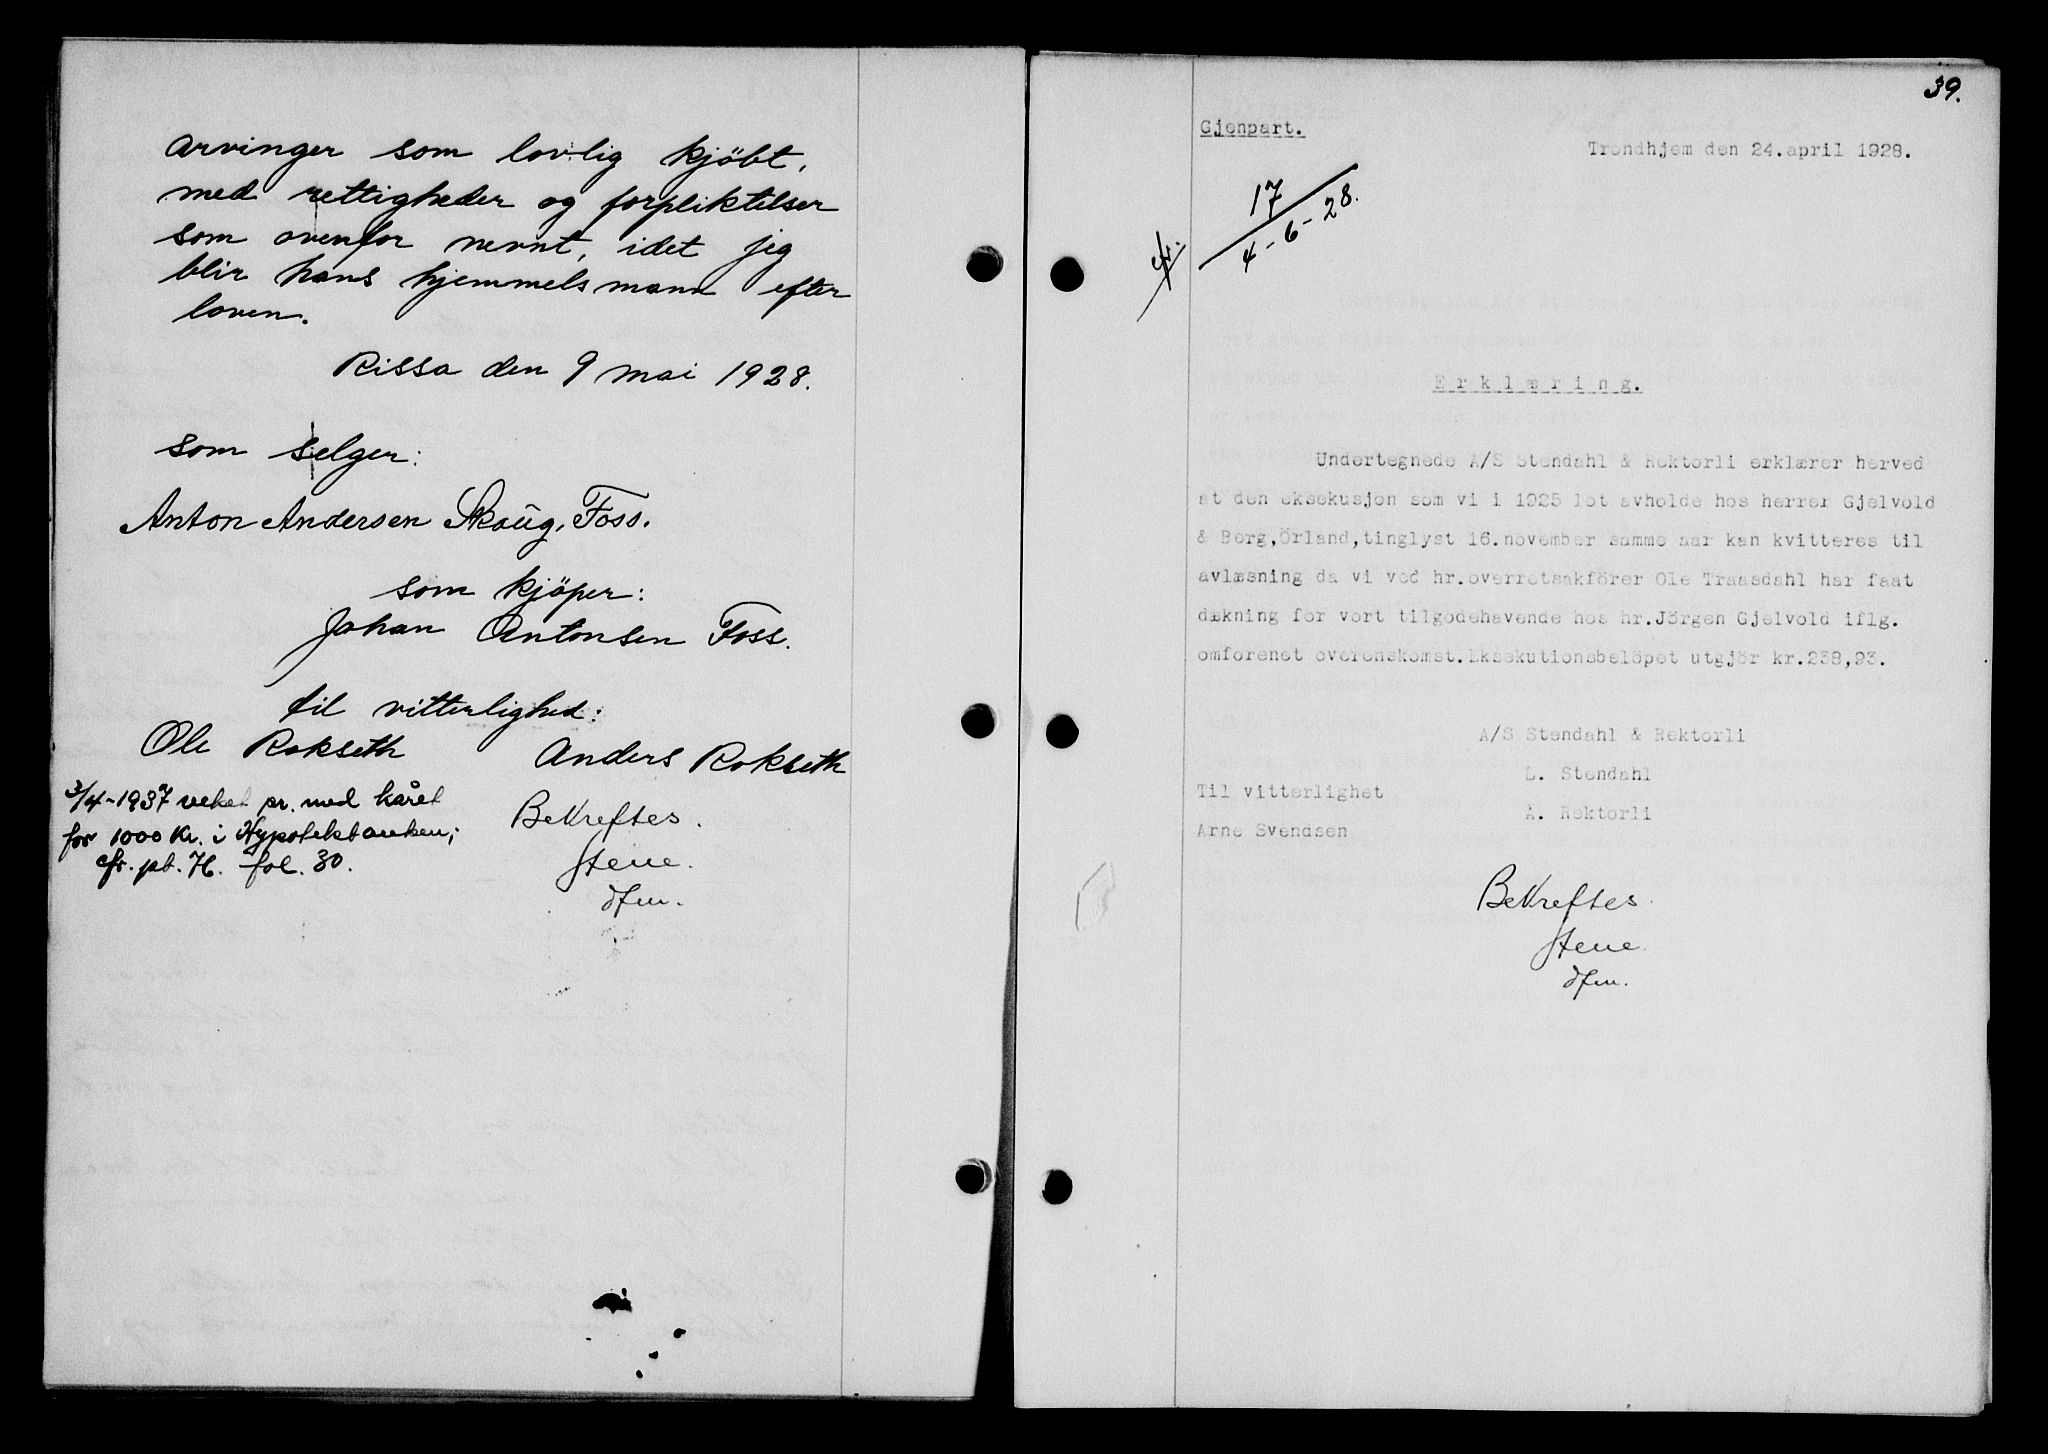 arvinger som lovlig kjöbt,
med rettigheder og forpliktelser
som ovenfor nevnt, idet jeg
blir hans hjemmelsmann efter
loven.
Rissa den 9 mai 1928.
som selger:
Anton Andersen Skaug, Foss.
som kjöper:
Johan Antonsen Foss.
til vitterlighed:
Ole Rokseth
Anders Rokseth
3/4-1937 veket pr. med kåret
for 1000 Kr. i Hypotekbanken;
cfr. pb. H. fol. 30.
Bekreftes.
Stene.
dfm.
39.
Gjenpart.
Trondhjem den 24.april 1928.
17
4-6-28.
Erklæring.
Undertegnede A/S Stendahl & Rektorli erklærer herved
at den eksekusjon som vi i 1925 lot avholde hos herrer Gjelvold
& Berg,Örland,tinglyst 16.november samme aar kan kvitteres til
avlæsning da vi ved hr.overretsakförer Ole Traasdahl har faat
dækning for vort tilgodehavende hos hr.Jörgen Gjelvold iflg.
omforenet overenskomst.Eksekutionsbelöpet utgjör kr.238,93.
A/S Stendahl & Rektorli
L. Stendahl
Til vitterlighet
A. Rektorli
Arne Svendsen
Bekreftes.
Stene.
dfm.